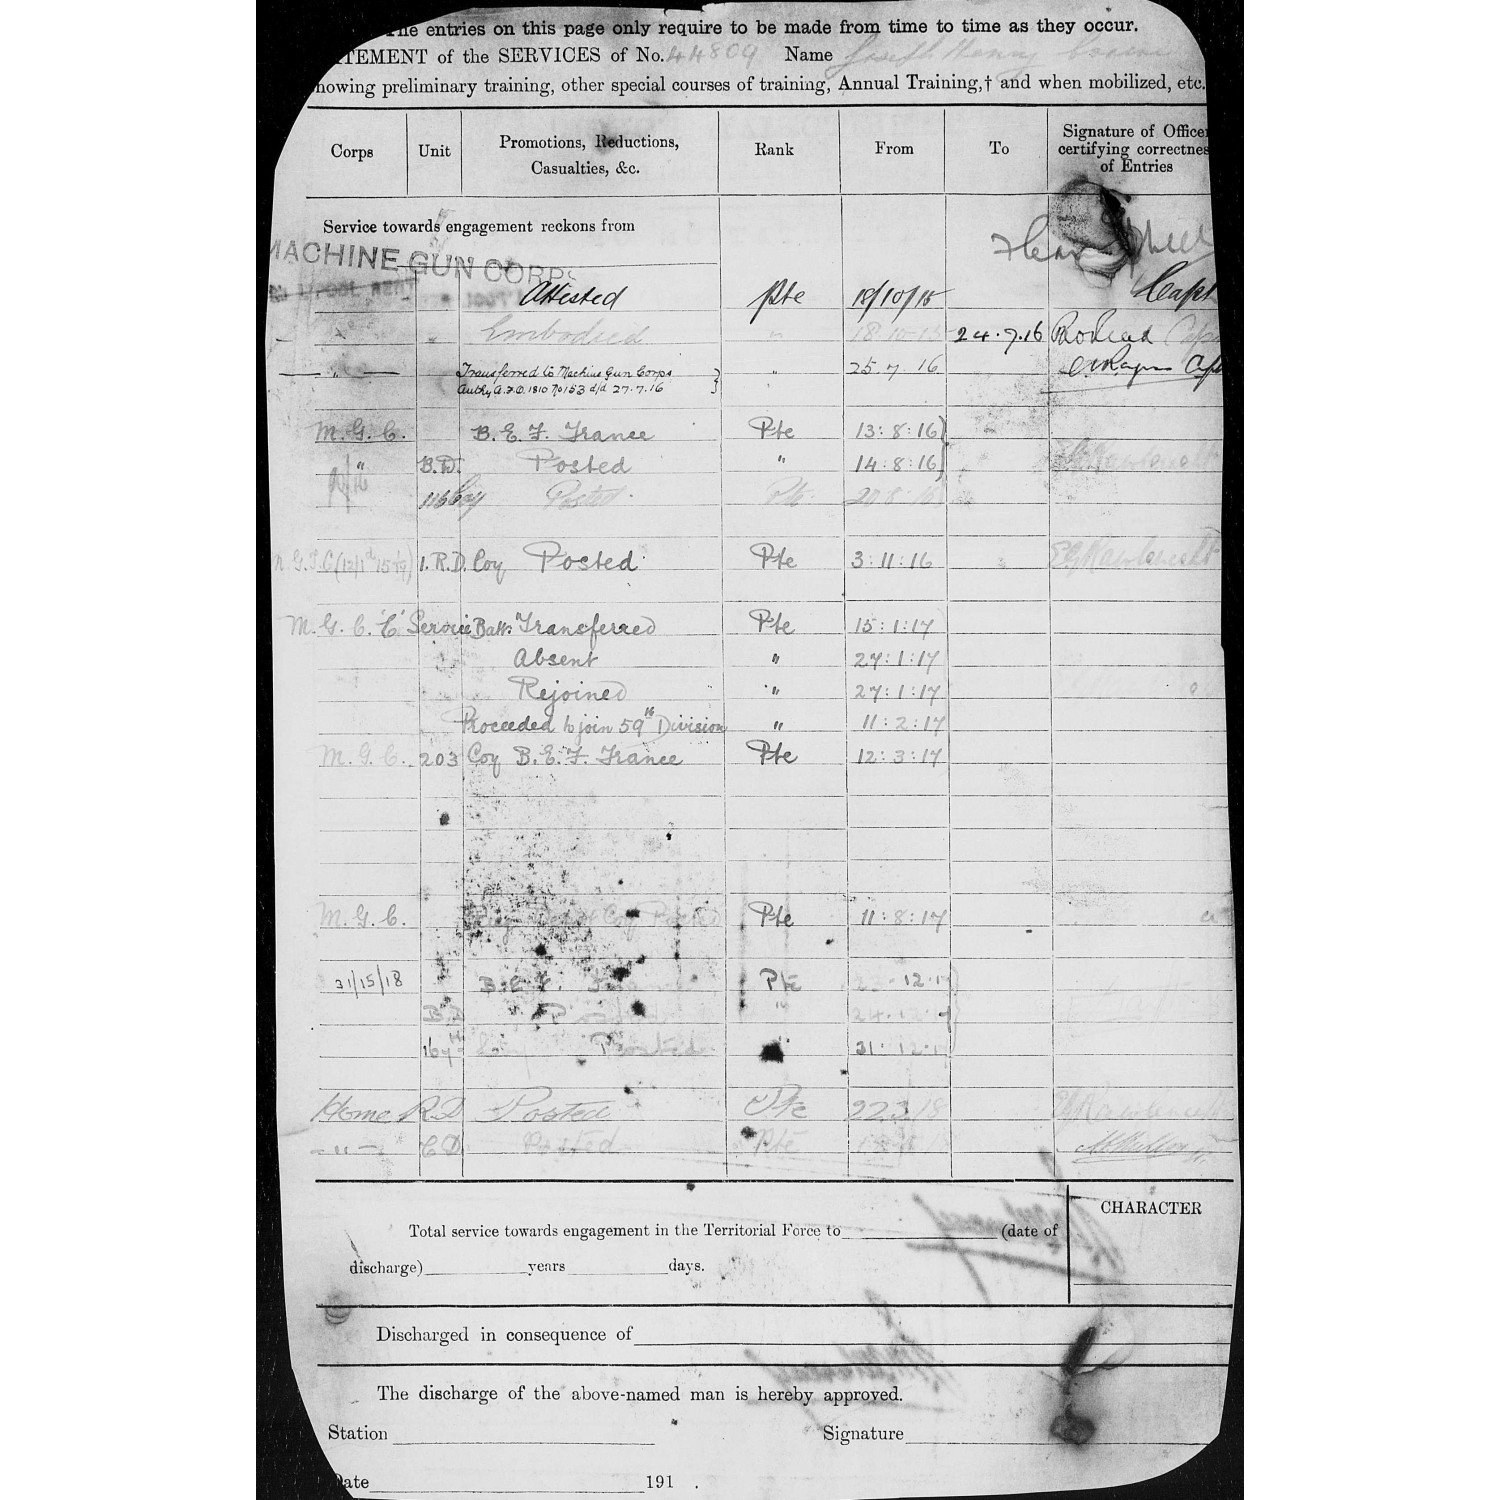 The entries on this page only require to be made from time to time as they occur.
TEMENT of the SERVICES of No. 44809 Name Joseph Henry
howing preliminary training, other special courses of training, Annual Training,† and when mobilized, etc.
Corps Unit Promotions, Reductions, Casualties, &c. Rank From To Signature of Officer certifying correctness of Entries
Service towards engagement reckons from
MACHINE GUN CORPS
Attested Pte 18/10/15 Capt
" " Embodied " 18·10·15 24·7·16
" Transferred to Machine Gun Corps " 25 7 16 Capt
Authy A.F.O. 1810 No 153 d/d 27.7.16
M. G. C. B. E. F. France Pte 13:8:16
" B.D. Posted " 14:8:16
116 Coy Posted Pte 20 8 16
1. R.D. Coy Posted Pte 3:11:16
M. G. C. 'E' Service Batt: Transferred Pte 15:1:17
Absent " 27:1:17
Rejoined " 27:1:17
Proceeded to join 59th Division " 11:2:17
M. G. C. 203 Coy B. E. F. France Pte 12:3:17
M. G. C. Coy Posted Pte 11:8:17
31/15/18 B. E. F. Pte 23·12·17
B.D. Posted " 24·12·17
167th Posted " 31·12·17
Home R.D Posted Pte 22 3 18
" C D Posted Pte
Total service towards engagement in the Territorial Force to (date of
CHARACTER
discharge) years days.
Discharged in consequence of
The discharge of the above-named man is hereby approved.
Station Signature
Date 191 .